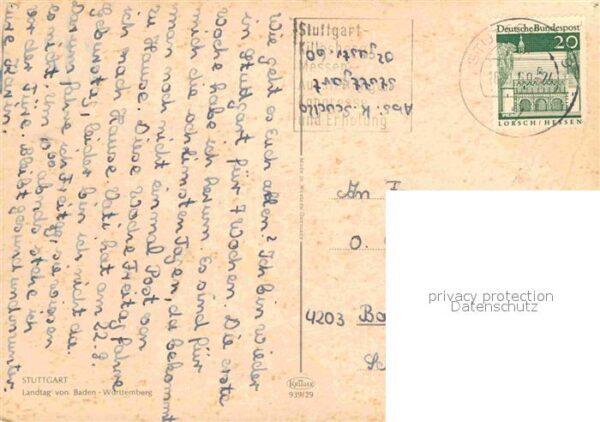 Wie geht es Euch allen? Ich bin wieder
in Stuttgart für 7 Wochen. Die erste
Woche habe ich herum. Es sind für
mich die schlimmsten Tagen, da bekommt
man noch nicht einmal Post von
zu Hause. Diese Woche Freitag fahre
ich nach Hause. Vati hat am 22.8.
Geburtstag, leider bin ich nicht da.
Darum fahre ich Freitag, sie wissen
es nicht, abends stehe ich
vor der Türe. Bleibt gesund und munter
Eure Karin.
Abs. K.
Stuttgart
Stuttgart
Messen
und Erholung
Deutsche Bundespost
20
LORSCH/HESSEN
An F
O.
4203 Ba
privacy protection
Datenschutz
STUTTGART
Landtag von Baden-Württemberg
Krüger
939/29